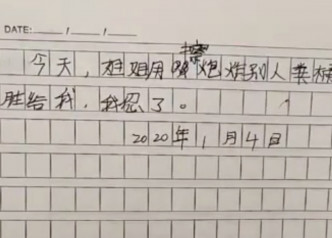 DATE: / /
今天,姐姐用摔炮炸别人类
胜给我,我忍了。
2020年1月4日